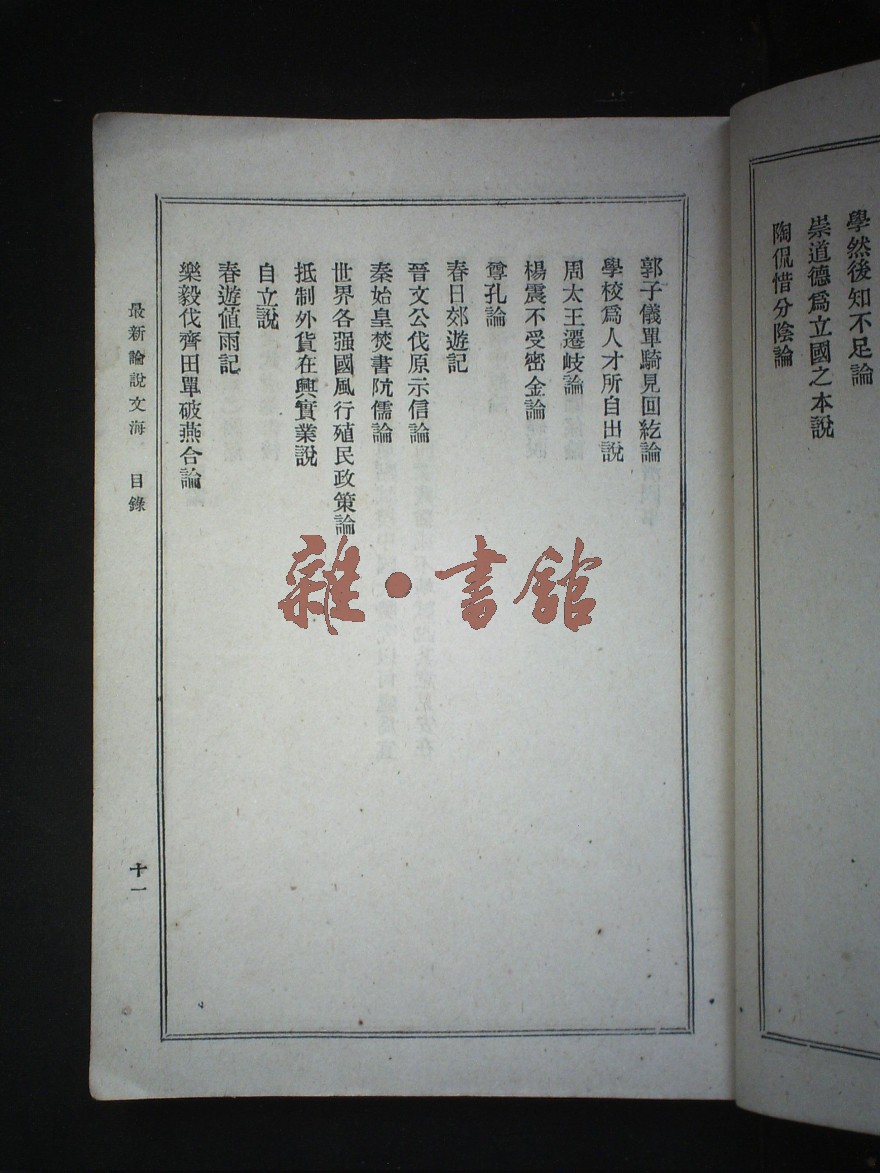 學然後知不足論
崇道德爲立國之本說
陶侃惜分陰論
郭子儀單騎見回紇論
學校爲人才所自出說
周太王遷岐論
楊震不受密金論
尊孔論
春日郊遊記
晉文公伐原示信論
秦始皇焚書阬儒論
世界各强國風行殖民政策論
抵制外貨在興實業說
自立說
春遊值雨記
樂毅伐齊田單破燕合論
最新論說文海 目錄
十一
雜·書館